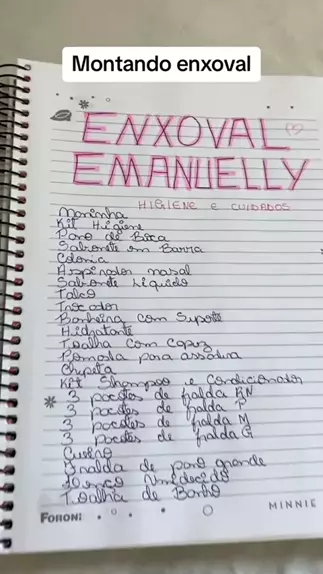 Montando enxoval
ENXOVAL
EMANUELLY
HIGIENE E CUIDADOS
Kit Higiene
Pano de Boca
Sabonete em Barra
Colonia
Aspirador nasal
Sabonete Líquido
Talco
Trocador
Banheira com Suporte
Hidratante
Toalha com capuz
Pomada para assadura
Chupeta
Kit Shampoo e Condicionador
* 3 pacotes de fralda RN
3 pacotes de fralda P
3 pacotes de fralda M
3 pacotes de fralda G
Fralda de pano grande
Lenço Umidecido
Toalha de Banho
FORONI
MINNIE